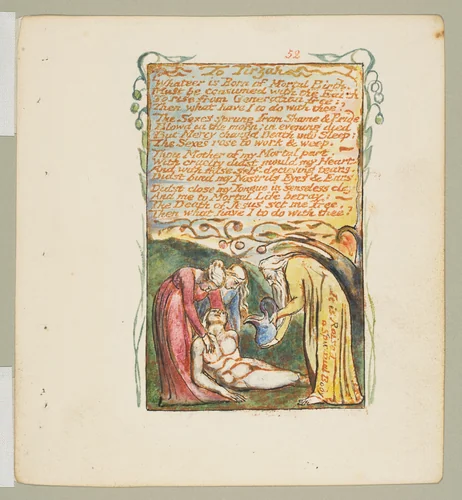 52
To Tirzah
Whate'er is Born of Mortal Birth,
Must be consumed with the Earth
To rise from Generation free:
Then what have I to do with thee?
The Sexes sprung from Shame & Pride
Blow'd in the morn: in evening died
But Mercy changd Death into Sleep;
The Sexes rose to work & weep.
Thou Mother of my Mortal part.
With cruelty didst mould my Heart.
And with false self-decieving tears,
Didst bind my Nostrils Eyes & Ears.
Didst close my Tongue in senseless clay
And me to Mortal Life betray:
The Death of Jesus set me free,
Then what have I to do with thee?
It is Raised
a Spiritual Body